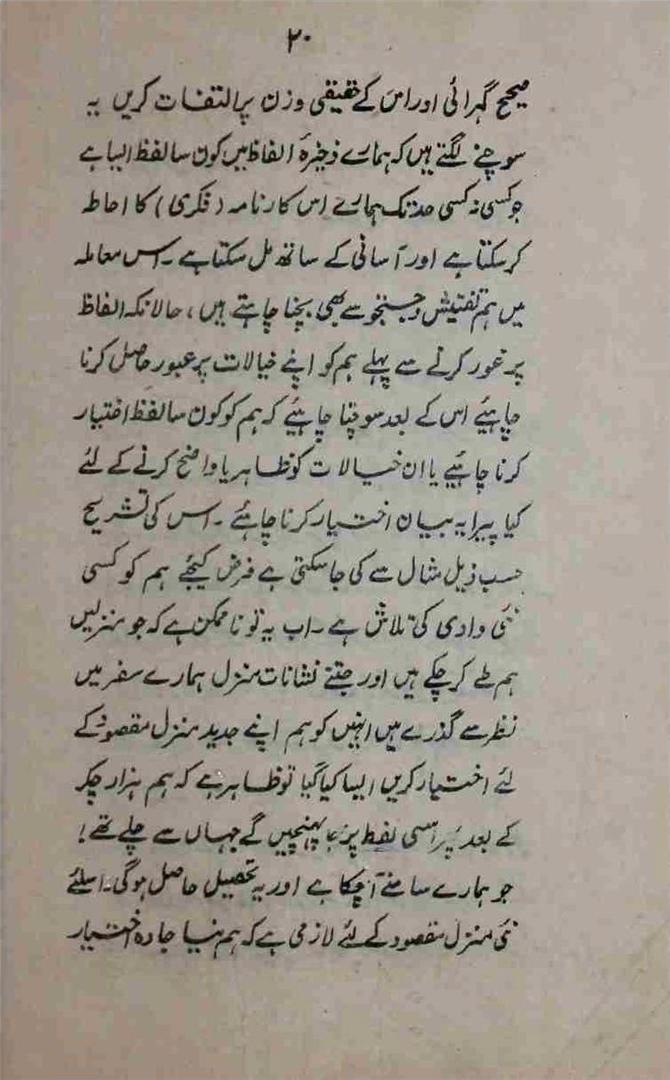 ۲۰
صحیح گہرائی اور اس کے حقیقی وزن پر التفات کریں یہ
سوچنے لگتے ہیں کہ ہمارے ذخیرۂ الفاظ میں کون سا لفظ ایسا ہے
جو کسی نہ کسی حد تک ہمارے اس کارنامہ (فکری) کا احاطہ
کر سکتا ہے اور آسانی کے ساتھ مل سکتا ہے ۔ اس معاملہ
میں ہم تفتیش و جستجو سے بھی بچنا چاہتے ہیں ، حالانکہ الفاظ
پر غور کرنے سے پہلے ہم کو اپنے خیالات پر عبور حاصل کرنا
چاہیئے اس کے بعد سوچنا چاہیئے کہ ہم کو کون سا لفظ اختیار
کرنا چاہیئے یا ان خیالات کو ظاہر یا واضح کرنے کے لئے
کیا پیرایہ بیان اختیار کرنا چاہئے ۔ اس کی تشریح
حسب ذیل مثال سے کی جا سکتی ہے فرض کیجئے ہم کو کسی
نئی وادی کی تلاش ہے ۔ اب یہ تو نا ممکن ہے کہ جو منزلیں
ہم طے کر چکے ہیں اور جتنے نشانات منزل ہمارے سفر میں
نظر سے گذرے ہیں انہیں کو ہم اپنے جدید منزل مقصود کے
لئے اختیار کریں ایسا کیا گیا تو ظاہر ہے کہ ہم ہزار چکر
کے بعد پر اسی نقطہ پر جا پہنچیں گے جہاں سے چلے تھے !
جو ہمارے سامنے آ چکا ہے اور یہ تحصیل حاصل ہوگی ۔ اسلئے
نئی منزل مقصود کے لئے لازمی ہے کہ ہم نیا جادہ اختیار